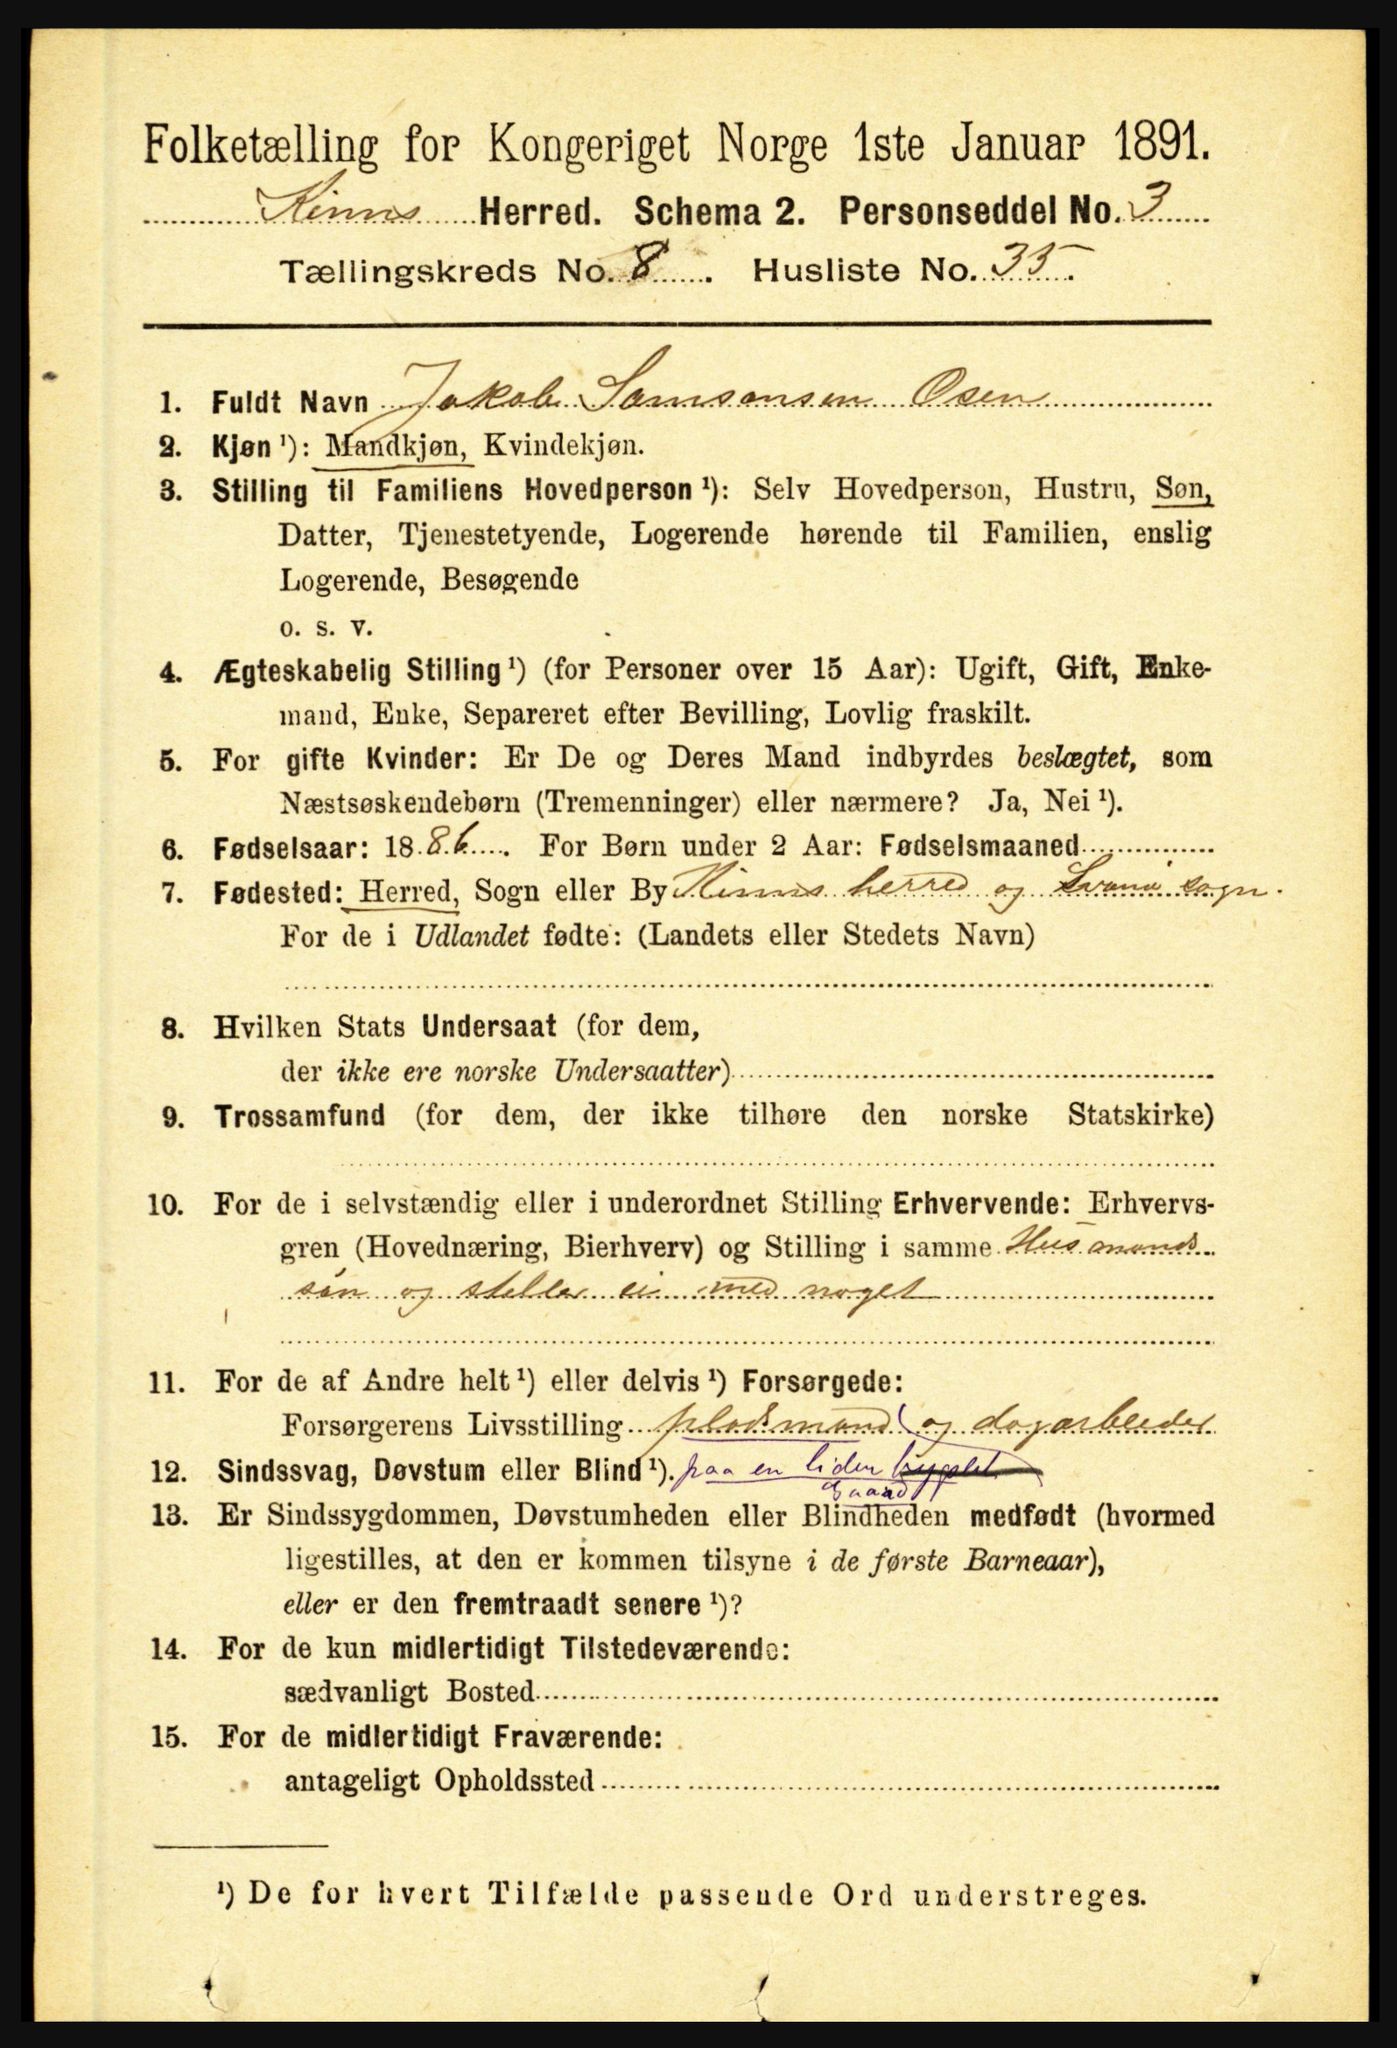 Folketælling for Kongeriget Norge 1ste Januar 1891.
Kinns Herred. Schema 2. Personseddel No. 3
Tællingskreds No. 8. Husliste No. 35.
1. Fuldt Navn Jakob Samsonsen Osen
2. Kjøn ¹): Mandkjøn, Kvindekjøn.
3. Stilling til Familiens Hovedperson ¹): Selv Hovedperson, Hustru, Søn,
Datter, Tjenestetyende, Logerende hørende til Familien, enslig
Logerende, Besøgende
o. s. v.
4. Ægteskabelig Stilling ¹) (for Personer over 15 Aar): Ugift, Gift, Enke-
mand, Enke, Separeret efter Bevilling, Lovlig fraskilt.
5. For gifte Kvinder: Er De og Deres Mand indbyrdes beslægtet, som
Næstsøskendebørn (Tremenninger) eller nærmere? Ja, Nei ¹).
6. Fødselsaar: 1886. For Børn under 2 Aar: Fødselsmaaned
7. Fødested: Herred, Sogn eller By Kinns herred og Svanø sogn.
For de i Udlandet fødte: (Landets eller Stedets Navn)
8. Hvilken Stats Undersaat (for dem,
der ikke ere norske Undersaatter)
9. Trossamfund (for dem, der ikke tilhøre den norske Statskirke)
10. For de i selvstændig eller i underordnet Stilling Erhvervende: Erhvervs-
gren (Hovednæring, Bierhverv) og Stilling i samme Husmands
søn og steller ei med noget
11. For de af Andre helt ¹) eller delvis ¹) Forsørgede:
Forsørgerens Livsstilling pladsmand og dagarbeider
12. Sindssvag, Døvstum eller Blind ¹). paa en liden
Gaard
13. Er Sindssygdommen, Døvstumheden eller Blindheden medfødt (hvormed
ligestilles, at den er kommen tilsyne i de første Barneaar),
eller er den fremtraadt senere ¹)?
14. For de kun midlertidigt Tilstedeværende:
sædvanligt Bosted
15. For de midlertidigt Fraværende:
antageligt Opholdssted
¹) De for hvert Tilfælde passende Ord understreges.